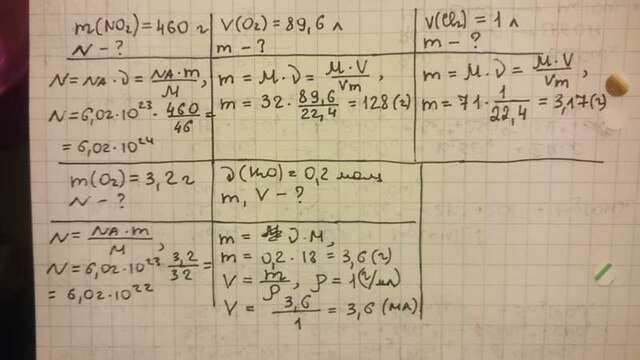 m(NO₂) = 460 г
N - ?
N = NA · ν = NA · m / M,
N = 6,02 · 10²³ · 460 / 46 =
= 6,02 · 10²⁴
V(O₂) = 89,6 л
m - ?
m = M · ν = M · V / Vm,
m = 32 · 89,6 / 22,4 = 128 (г)
V(Cl₂) = 1 л
m - ?
m = M · ν = M · V / Vm,
m = 71 · 1 / 22,4 = 3,17 (г)
m(O₂) = 3,2 г
N - ?
N = NA · m / M,
N = 6,02 · 10²³ · 3,2 / 32 =
= 6,02 · 10²²
ν(H₂O) = 0,2 моль
m, V - ?
m = ν · M,
m = 0,2 · 18 = 3,6 (г)
V = m / ρ, ρ = 1 (г/мл)
V = 3,6 / 1 = 3,6 (мл)